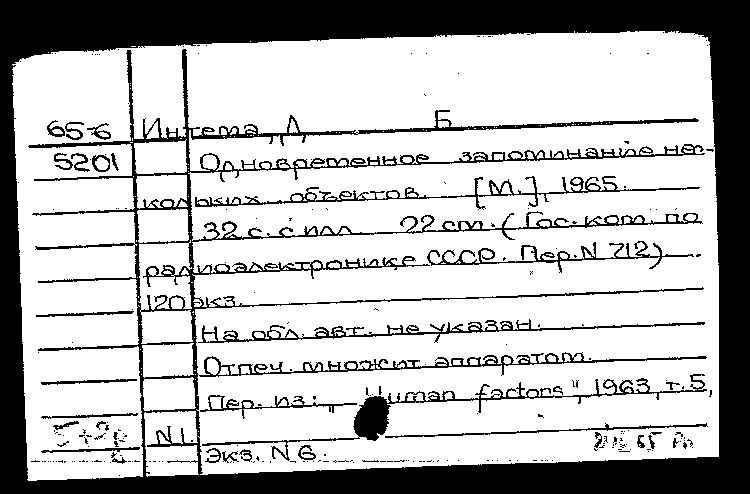 65-6 Интема, Д Б
5201 Одновременное запоминание нес-
кольких объектов. [М.], 1965.
32 с. с илл 22 cm. (Гос. ком. по
радиоэлектронике СССР. Пер. N 712)
120 экз.
На обл. авт. не указан.
Отпеч. множит. аппаратом.
Пер. из: „Human factors", 1963, т. 5,
N 1.
Экз. N 6. 65